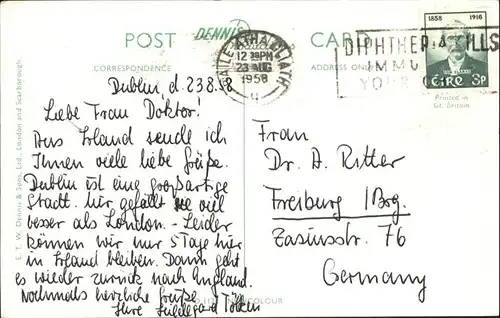 POST DENNIS CARD
CORRESPONDENCE
ADDRESS ONLY
BAILE ÁTHA CLIATH
12 30PM
23 AUG
1958
DIPHTHERIA KILLS
IMMU
YOUR
1858 1916
ÉIRE 3p
Printed in
Gt. Britain.
E. T. W. Dennis & Sons, Ltd., London and Scarborough
Dublin, d. 23.8.58
Liebe Frau Doktor!
Aus Irland sende ich
Ihnen viele liebe Grüße.
Dublin ist eine großartige
Stadt. hier gefällt viel
besser als London. - Leider
können wir nur 5 Tage hier
in Irland bleiben. Dann geht
es wieder zurück nach England.
Nochmals herzliche Grüße
Ihre Hildegard
COLOUR
Frau
Dr. A. Ritter
Freiburg /Brg.
Zasiusstr. 76
Germany